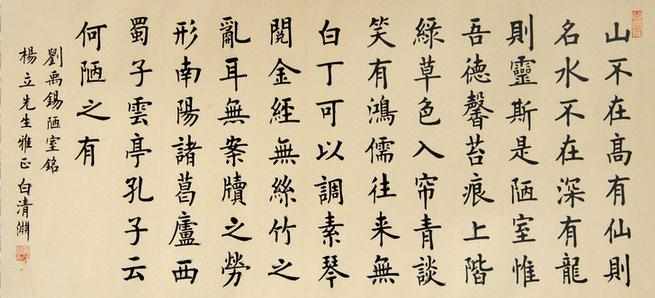 山不在高有仙則
名水不在深有龍
則靈斯是陋室惟
吾德馨苔痕上階
綠草色入帘青談
笑有鴻儒往来無
白丁可以調素琴
閱金經無絲竹之
亂耳無案牘之勞
形南陽諸葛廬西
蜀子雲亭孔子云
何陋之有
劉禹錫陋室銘
楊立先生雅正 白清淵